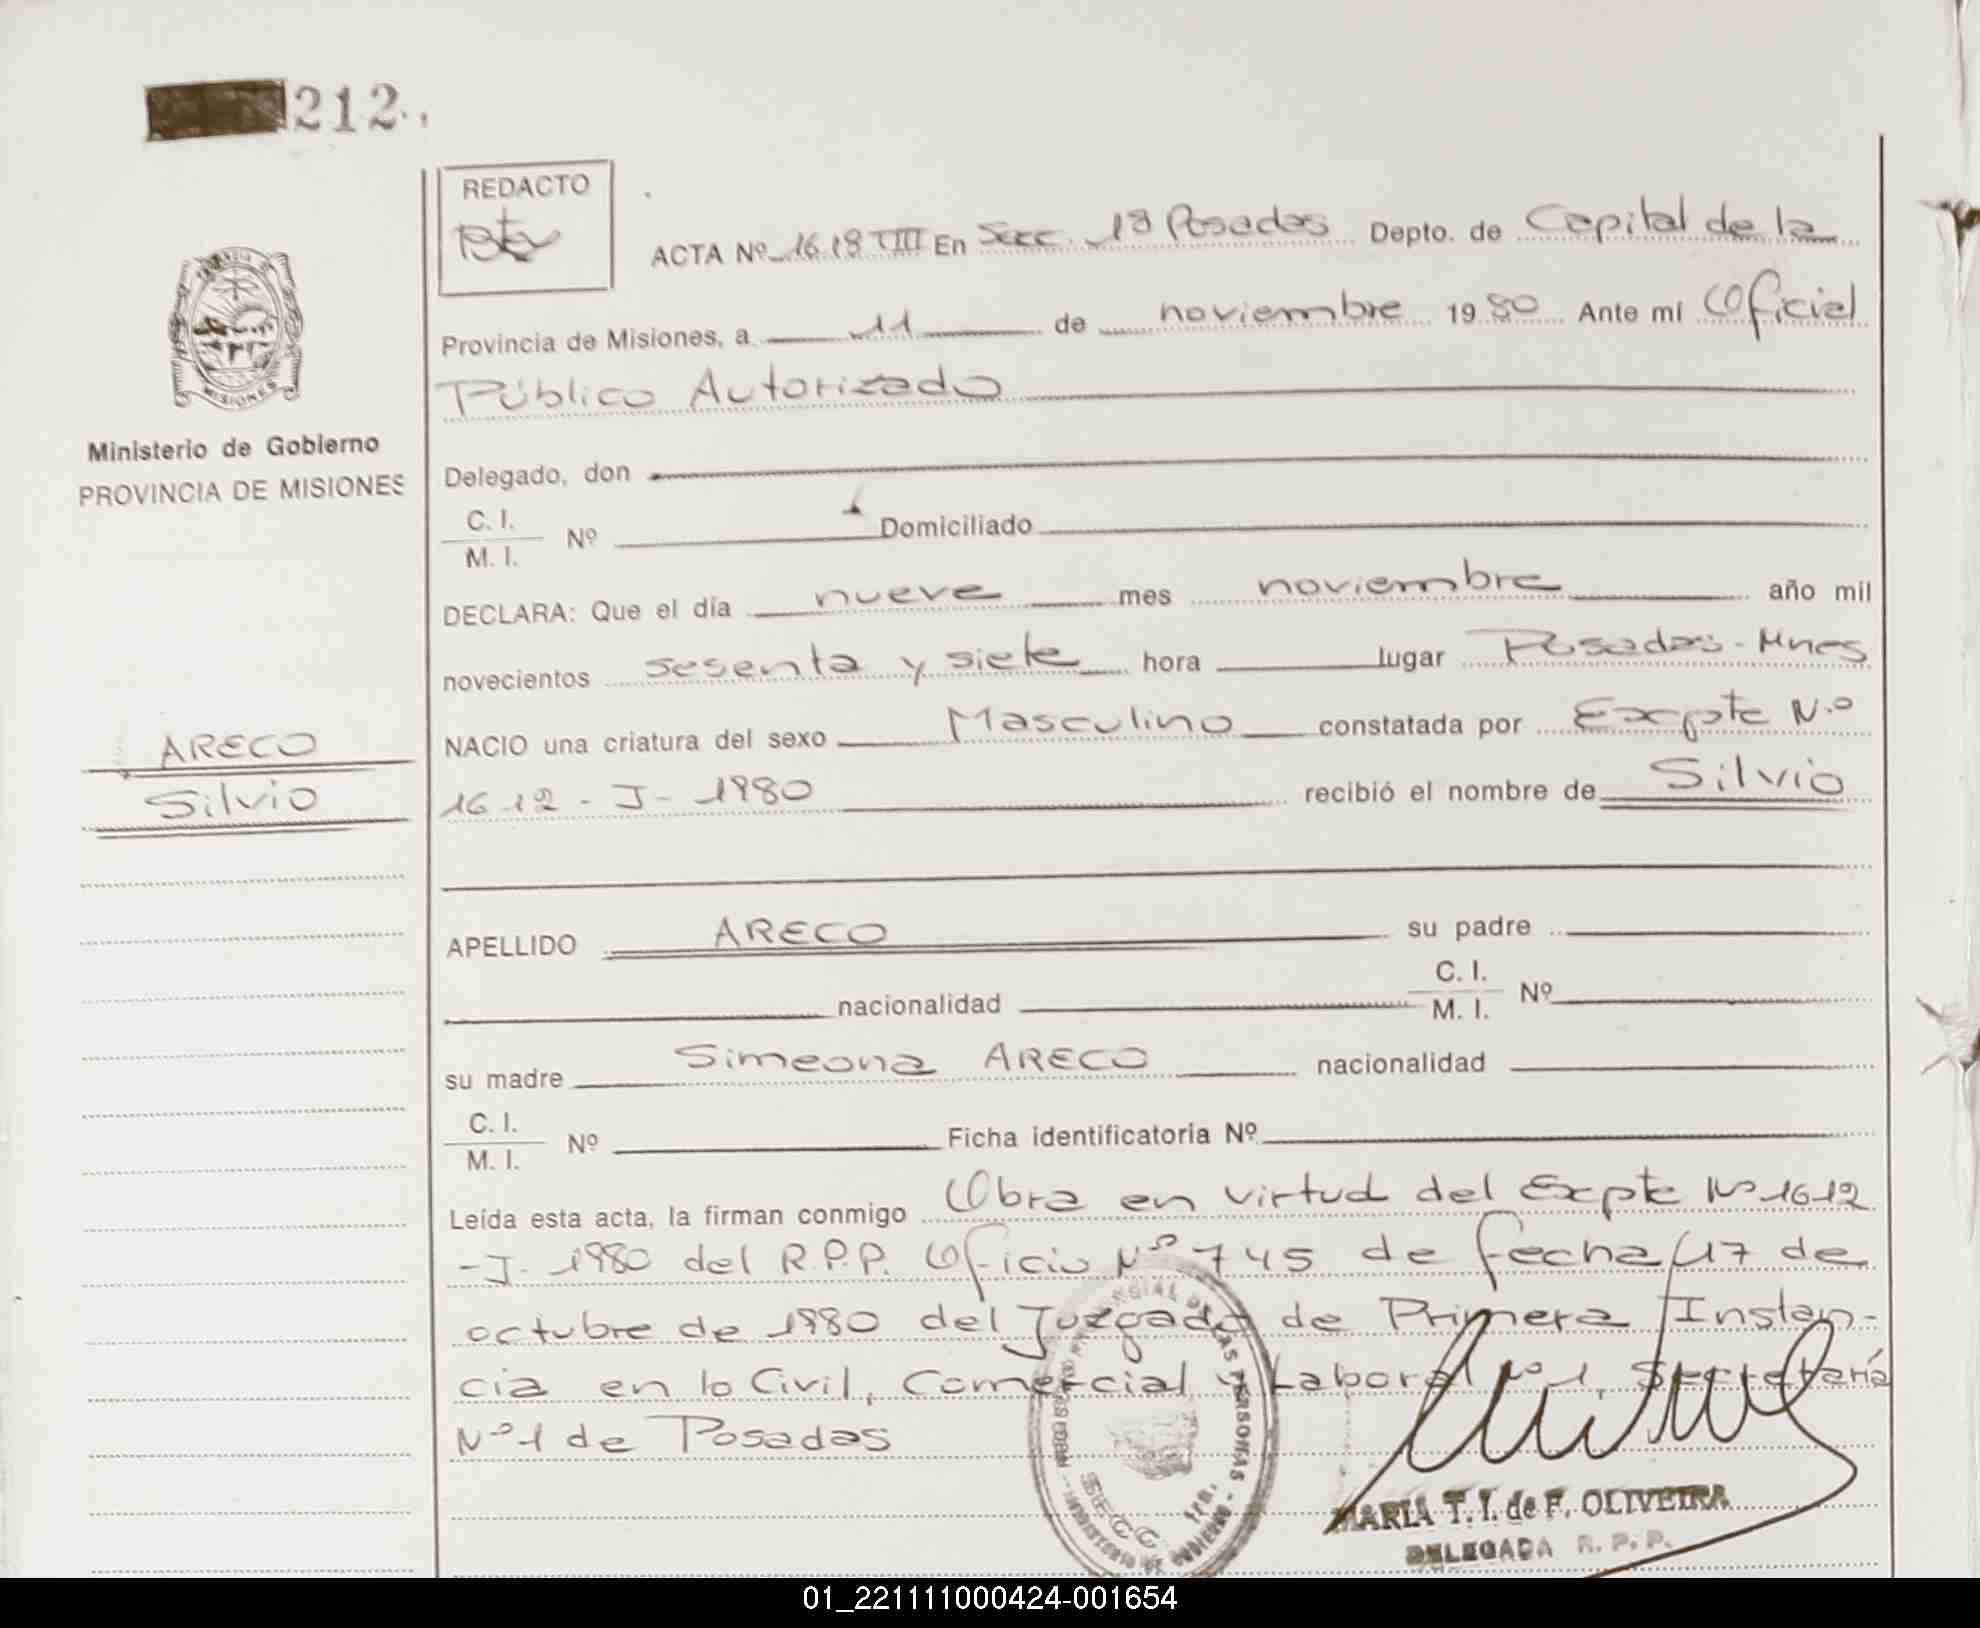 212.
REDACTO
ACTA Nº 1618 TIII En Secc. 1ª Posadas Depto. de Capital de la
Provincia de Misiones, a 11 de noviembre 1980 Ante mí Oficial
Público Autorizado
Ministerio de Gobierno
PROVINCIA DE MISIONES
Delegado, don
C. I.
M. I. Nº Domiciliado
DECLARA: Que el día nueve mes noviembre año mil
novecientos sesenta y siete hora lugar Posadas - Mnes
NACIO una criatura del sexo Masculino constatada por Expte N.º
ARECO
Silvio
1612 - J - 1980 recibió el nombre de Silvio
APELLIDO ARECO su padre
nacionalidad C. I.
M. I. Nº
su madre Simeona ARECO nacionalidad
C. I.
M. I. Nº Ficha identificatoria Nº
Leída esta acta, la firman conmigo Obra en virtud del Expte Nº 1612
- J - 1980 del R.P.P. Oficio Nº 745 de fecha 17 de
octubre de 1980 del Juzgado de Primera Instan-
cia en lo Civil, Comercial y Laboral Nº 1, Secretaría
Nº 1 de Posadas
MARIA T. I. de F. OLIVEIRA
DELEGADA R. P. P.
01_221111000424-001654